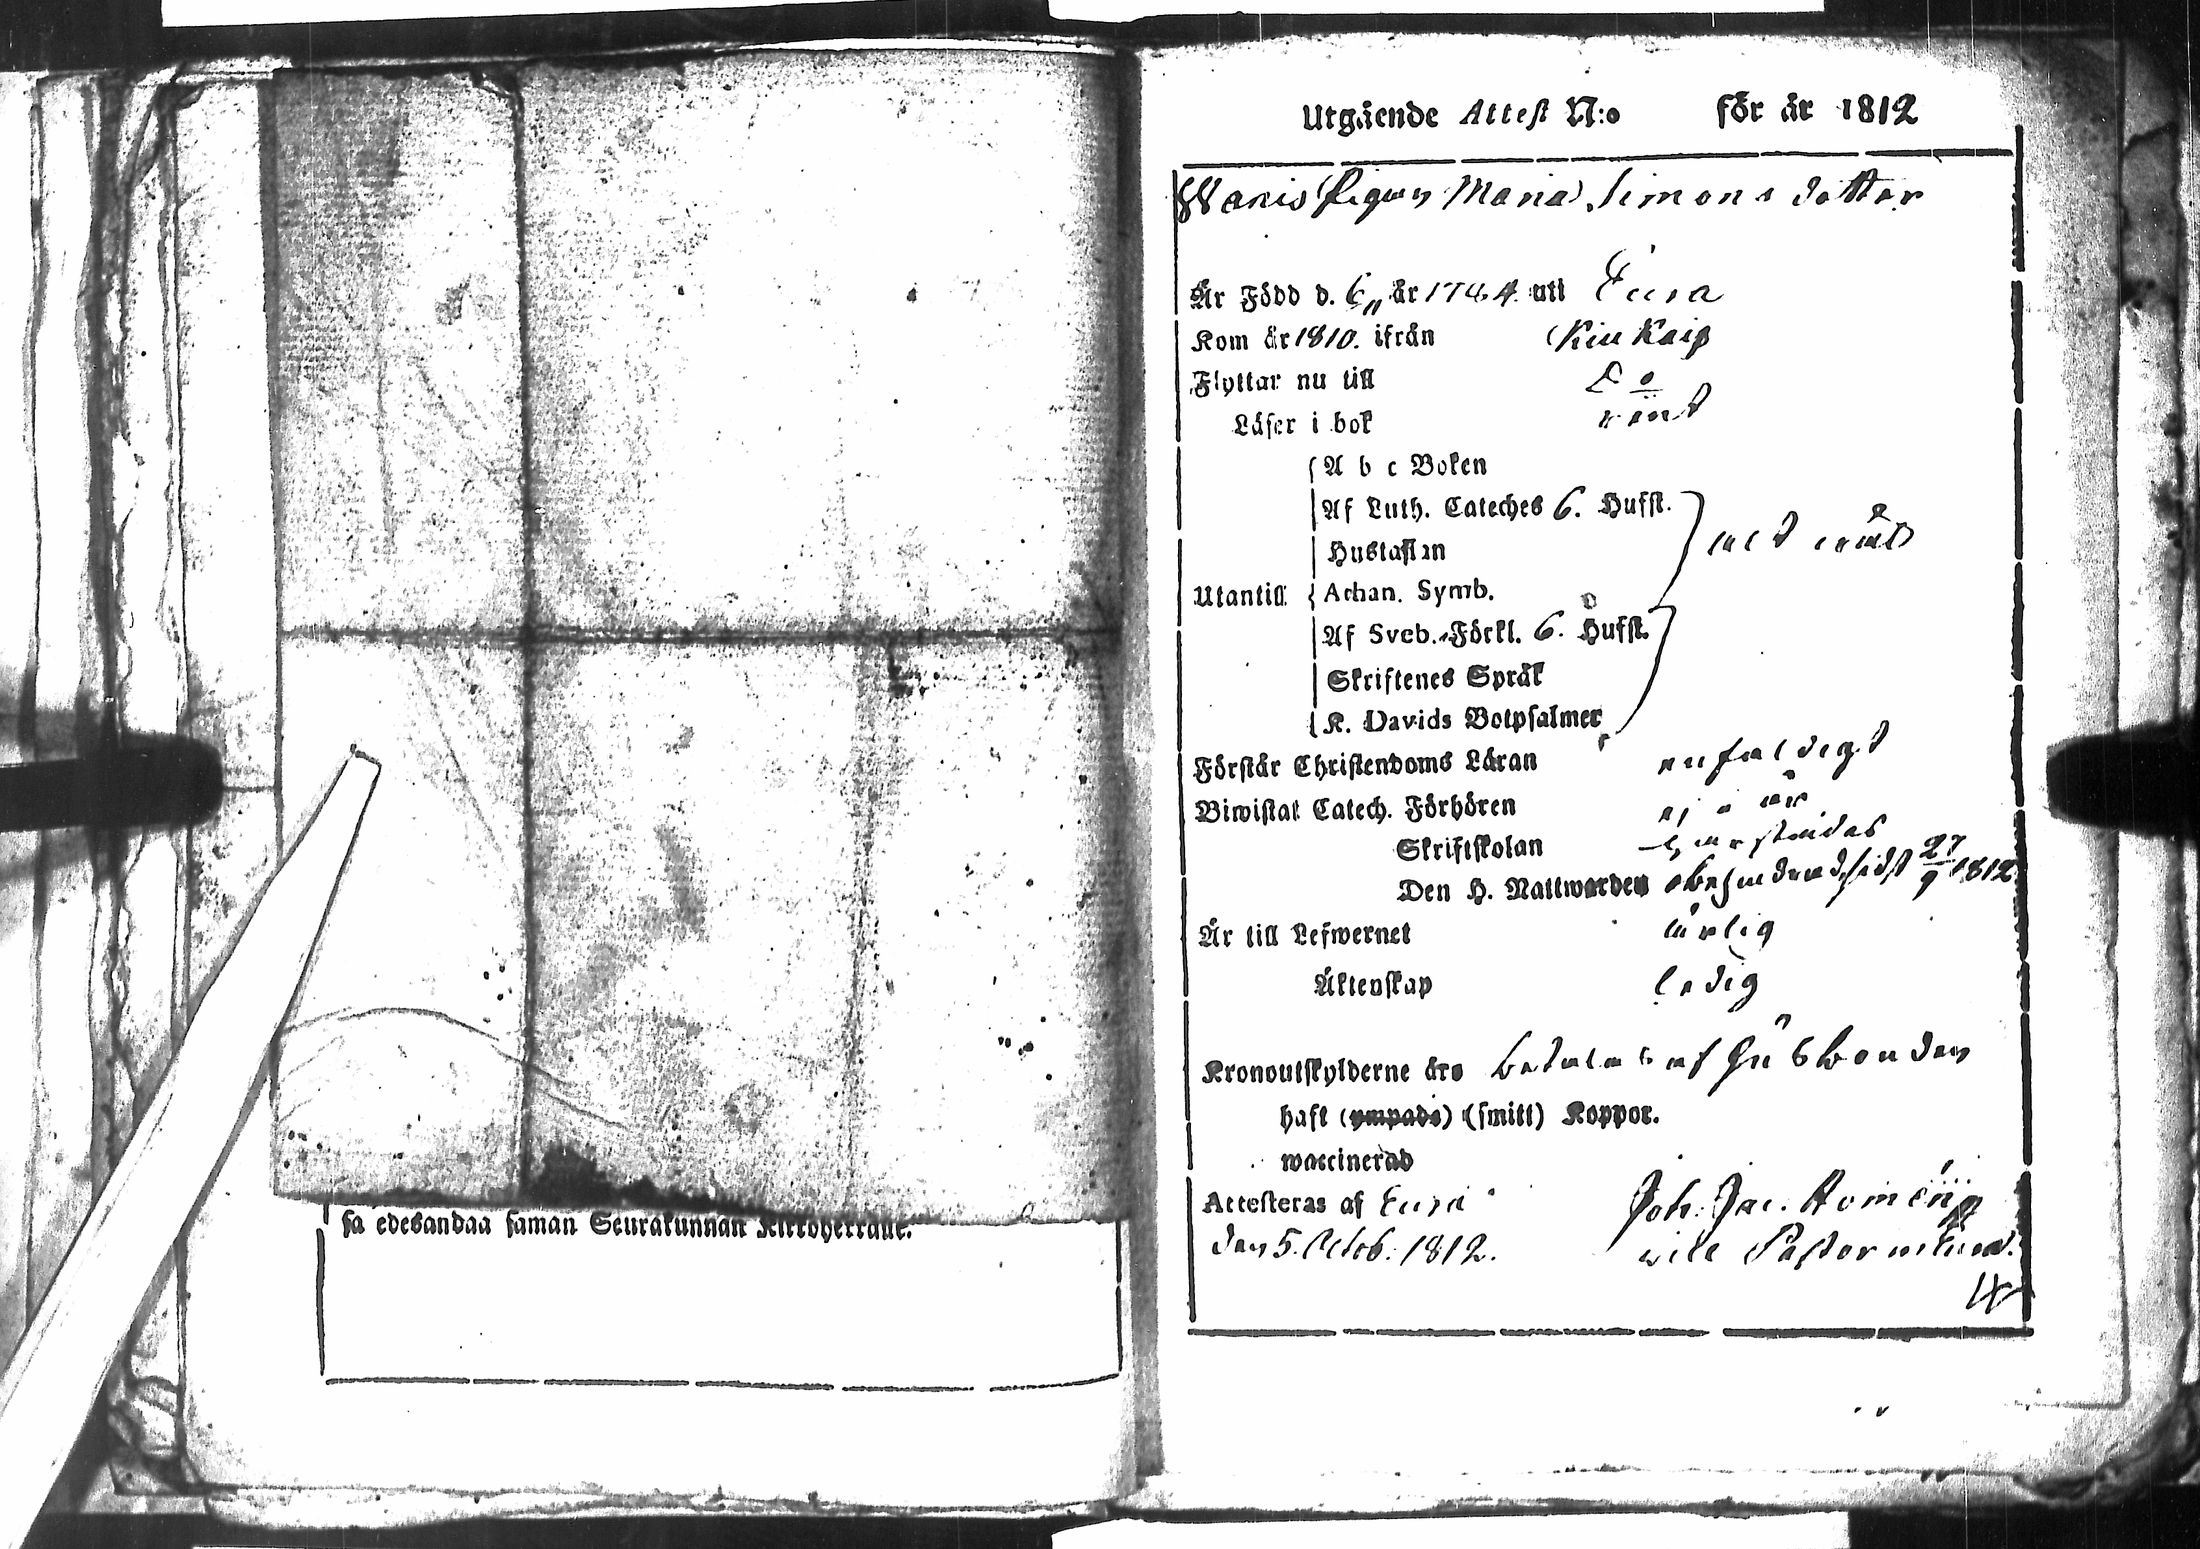 sa edesandaa saman Seurakunnan Kirkoherralle.
Utgäende Attest N:o för år 1812
Pigan Maria Simonsdotter
Är Född d. 6 år 1784 uti Eura
Kom år 1810. ifrån Kiukais
Flyttar nu till Do
Läser i bok rent
A b c Boken
Af Luth. Cateches 6. Hufst.
Hustaflan
Utantill Athan. Symb.
Af Sveb. Förkl. 6. Hufst.
Skriftenes Språk
K. Davids Botpsalmer
Förstår Christendoms Läran enfaldigt
Biwistat Catech. Förhören ej i år
Skriftskolan
Den H. Nattwarden sidst 27/9 1812
Är till Lefwernet ärlig
Äktenskap ledig
Kronoutskylderne äro betalas af Husbonden
haft (ympade) (smitt) Koppor.
waccinerad
Attesteras af Eura Joh. Jac.
den 5. Octob. 1812. Pastor